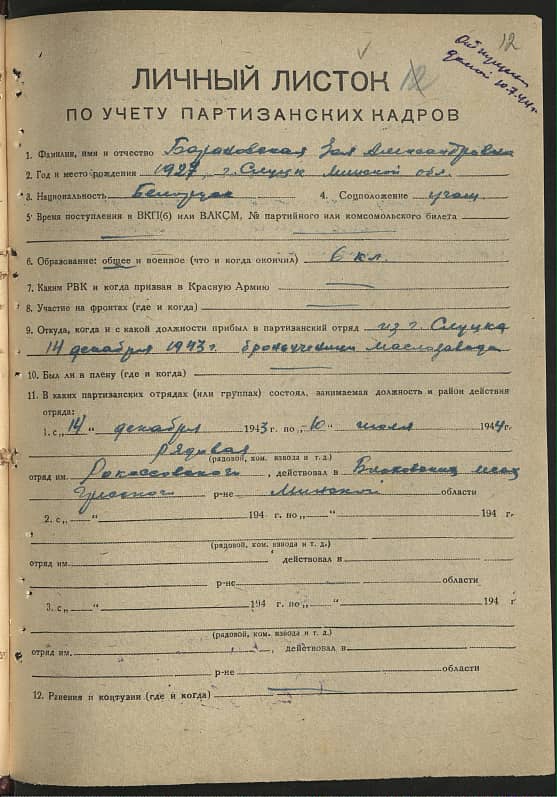 12
Отпущен
домой 10.7.44г.
ЛИЧНЫЙ ЛИСТОК 12
ПО УЧЕТУ ПАРТИЗАНСКИХ КАДРОВ
1. Фамилия, имя и отчество Барановская Зоя Александровна
2. Год и место рождения 1927, г. Слуцк Минской обл.
3. Национальность Белоруска 4. Соцположение учащ.
5. Время поступления в ВКП(б) или ВЛКСМ, № партийного или комсомольского билета
6. Образование: общее и военное (что и когда окончил) 6 кл.
7. Каким РВК и когда призван в Красную Армию
8. Участие на фронтах (где и когда)
9. Откуда, когда и с какой должности прибыл в партизанский отряд из г. Слуцка
14 декабря 1943 г. Маслозавода
10. Был ли в плену (где и когда)
11. В каких партизанских отрядах (или группах) состоял, занимаемая должность и район действия
отряда:
1. с „14“ декабря 1943 г. по „10“ июля 1944 г.
рядовая
(рядовой, ком. взвода и т. д.)
отряд им. Рокоссовского, действовал в
Гресского р-не Минской области
2. с „ “ 194 г. по „ “ 194 г.
(рядовой, ком. взвода и т. д.)
отряд им. действовал в
р-не области
3. с „ “ 194 г. по „ “ 194 г
(рядовой, ком. взвода и т. д.)
отряд им. , действовал в
р-не области
12. Ранения и контузии (где и когда)